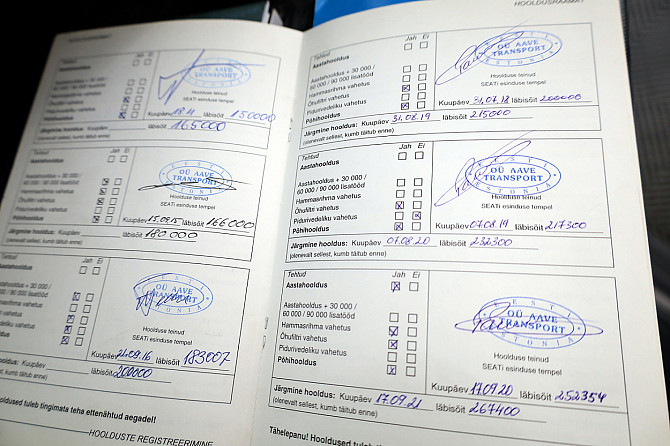 Tehtud Jah Ei
Aastahooldus
Aastahooldus + 30 000 /
60 000 / 90 000 lisatööd
Hammasrihma vahetus
Õhufiltri vahetus
Pidurivedeliku vahetus
Põhihooldus
EESTI
OÜ AAVE
TRANSPORT
ESTONIA
Hoolduse teinud
SEATi esinduse tempel
Kuupäev 18.11 läbisõit 150000
Järgmine hooldus: Kuupäev läbisõit
(olenevalt sellest, kumb täitub enne) 165000
Tehtud Jah Ei
Aastahooldus
Aastahooldus + 30 000 /
60 000 / 90 000 lisatööd
Hammasrihma vahetus
Õhufiltri vahetus
Pidurivedeliku vahetus
Põhihooldus
EESTI
OÜ AAVE
TRANSPORT
ESTONIA
Hoolduse teinud
SEATi esinduse tempel
Kuupäev 15.09.15 läbisõit 166000
Järgmine hooldus: Kuupäev läbisõit
(olenevalt sellest, kumb täitub enne) 180000
Jah Ei
aastahooldus
Aastahooldus + 30 000 /
60 000 / 90 000 lisatööd
Hammasrihma vahetus
Õhufiltri vahetus
Pidurivedeliku vahetus
Põhihooldus
EESTI
OÜ AAVE
TRANSPORT
ESTONIA
Hoolduse teinud
SEATi esinduse tempel
Kuupäev 26.09.16 läbisõit 183007
hooldus: Kuupäev läbisõit
sellest, kumb täitub enne) 200000
Hooldused tuleb tingimata teha ettenähtud aegadel!
HOOLDUSTE REGISTREERIMINE
HOOLDUSRAAMAT
Tehtud Jah Ei
Aastahooldus
Aastahooldus + 30 000 /
60 000 / 90 000 lisatööd
Hammasrihma vahetus
Õhufiltri vahetus
Pidurivedeliku vahetus
Põhihooldus
EESTI
OÜ AAVE
TRANSPORT
ESTONIA
Hoolduse teinud
SEATi esinduse tempel
Kuupäev 31.07.18 läbisõit 200000
Järgmine hooldus: Kuupäev 31.08.19 läbisõit 215000
(olenevalt sellest, kumb täitub enne)
Tehtud Jah Ei
Aastahooldus
Aastahooldus + 30 000 /
60 000 / 90 000 lisatööd
Hammasrihma vahetus
Õhufiltri vahetus
Pidurivedeliku vahetus
Põhihooldus
EESTI
OÜ AAVE
TRANSPORT
ESTONIA
Hoolduse teinud
SEATi esinduse tempel
Kuupäev 07.08.19 läbisõit 217300
Järgmine hooldus: Kuupäev 07.08.20 läbisõit 232300
(olenevalt sellest, kumb täitub enne)
Tehtud Jah Ei
Aastahooldus
Aastahooldus + 30 000 /
60 000 / 90 000 lisatööd
Hammasrihma vahetus
Õhufiltri vahetus
Pidurivedeliku vahetus
Põhihooldus
EESTI
OÜ AAVE
TRANSPORT
ESTONIA
Hoolduse teinud
SEATi esinduse tempel
Kuupäev 17.09.20 läbisõit 252354
Järgmine hooldus: Kuupäev 17.09.21 läbisõit 267400
(olenevalt sellest, kumb täitub enne)
Tähelepanu! Hooldused tuleb